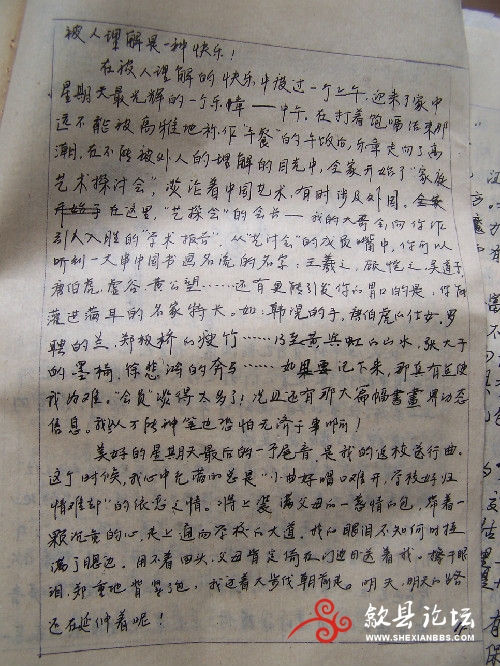 被人理解是一种快乐！
在被人理解的快乐中度过一个上午，迎来了家中
星期天最光辉的一个乐章——中午。在打着饱嗝结束那
远不能被高雅地称作“午餐”的午饭后，乐章走向了高
潮。在不能被外人的理解的目光中，全家开始了“家庭
艺术探讨会”，谈论着中国艺术，有时涉及外国。
在这里，“艺探会”的会长——我的大哥会向你作
引人入胜的“学术报告”。从“艺讨会”的成员嘴中，你可以
听到一大串中国书画名流的名字：王羲之、顾恺之、吴道子、
唐伯虎、虚谷、黄公望……还有更能引发你的胃口的是，你
灌进满耳的名家特长。如：韩滉的牛，唐伯虎的仕女，罗
聘的兰，郑板桥的瘦竹……乃至黄宾虹的山水，张大千
的墨荷，徐悲鸿的奔马……如果要记下来，那真有些使
我为难。会员谈得太多了！况且还有那大篇幅书画界动态
信息。我纵有神笔也恐怕无济于事啊！
美好的星期天最后的一个尾音，是我的返校送行曲。
这个时候，我心中充荡的总是“小曲好唱口难开，学校好归
情难却”的依恋之情。肩上装满父母的一卷情的包，带着一
颗沉重的心，走上通向学校的大道。我的眼泪不知何时挂
满了眼边。用不着回头，父母肯定倚在门边目送着我。擦干眼
泪，郑重地背紧了包，我迈着大步伐朝前走。明天，明天的路
还在延伸着呢！
歙县论坛
WWW.SHEXIANBBS.COM